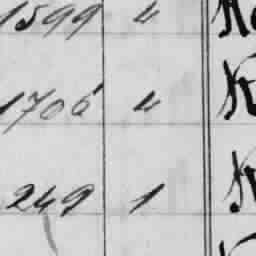 1599 4
1706 4
249 1